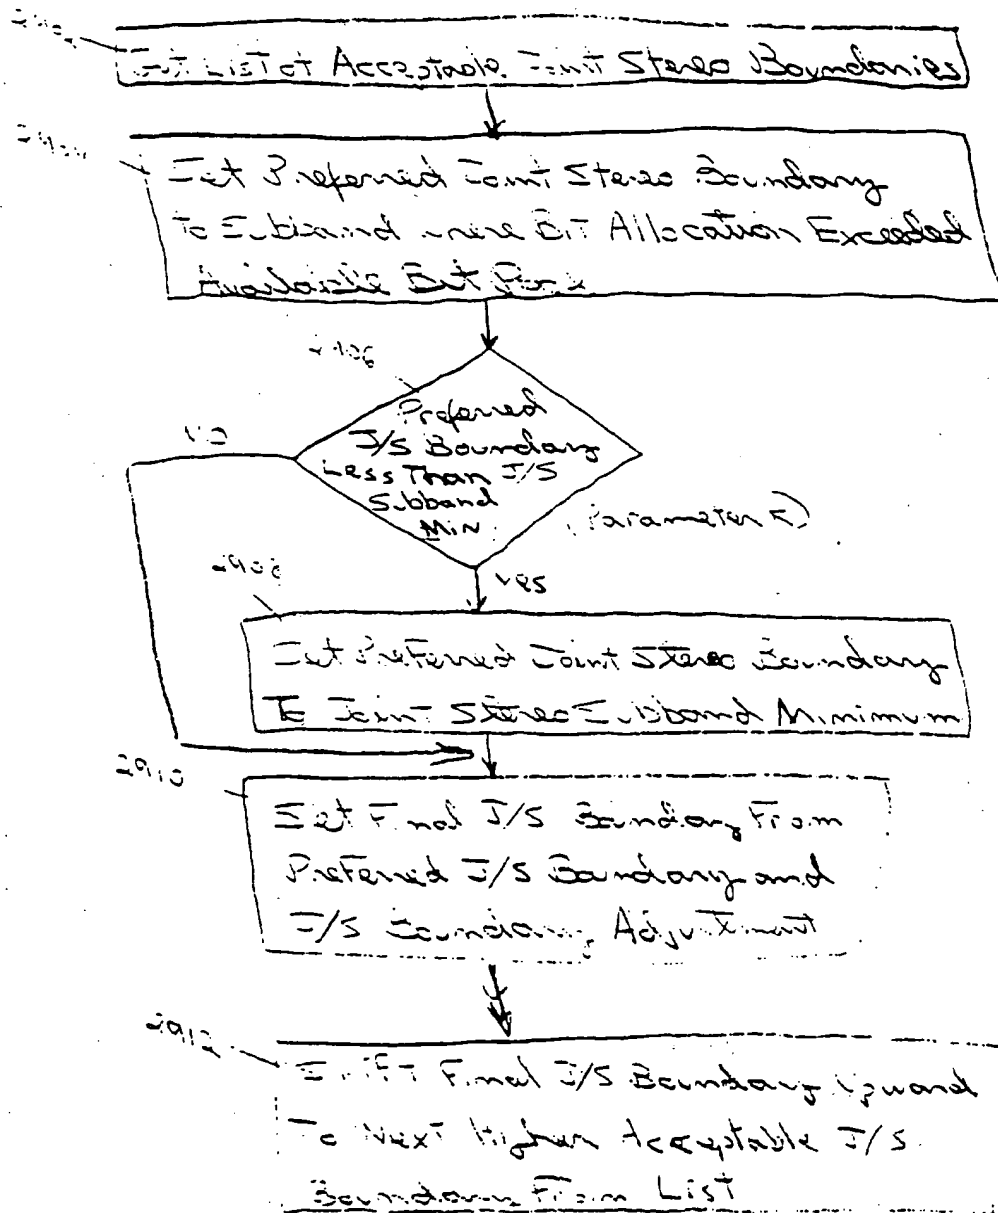 Get List of Acceptable Joint Stereo Boundaries
2904
Set Preferred Joint Stereo Boundary
To Subband where Bit Allocation Exceeded
Available Bit Pool
2906
Preferred
J/S Boundary
Less Than J/S
Subband
Min
NO
(Parameter
2908
Yes
Set Preferred Joint Stereo Boundary
To Joint Stereo Subband Minimum
2910
Set Final J/S Boundary From
Preferred J/S Boundary and
J/S Boundary Adjustment
2912
Shift Final J/S Boundary Upward
To Next Higher Acceptable J/S
Boundary From List